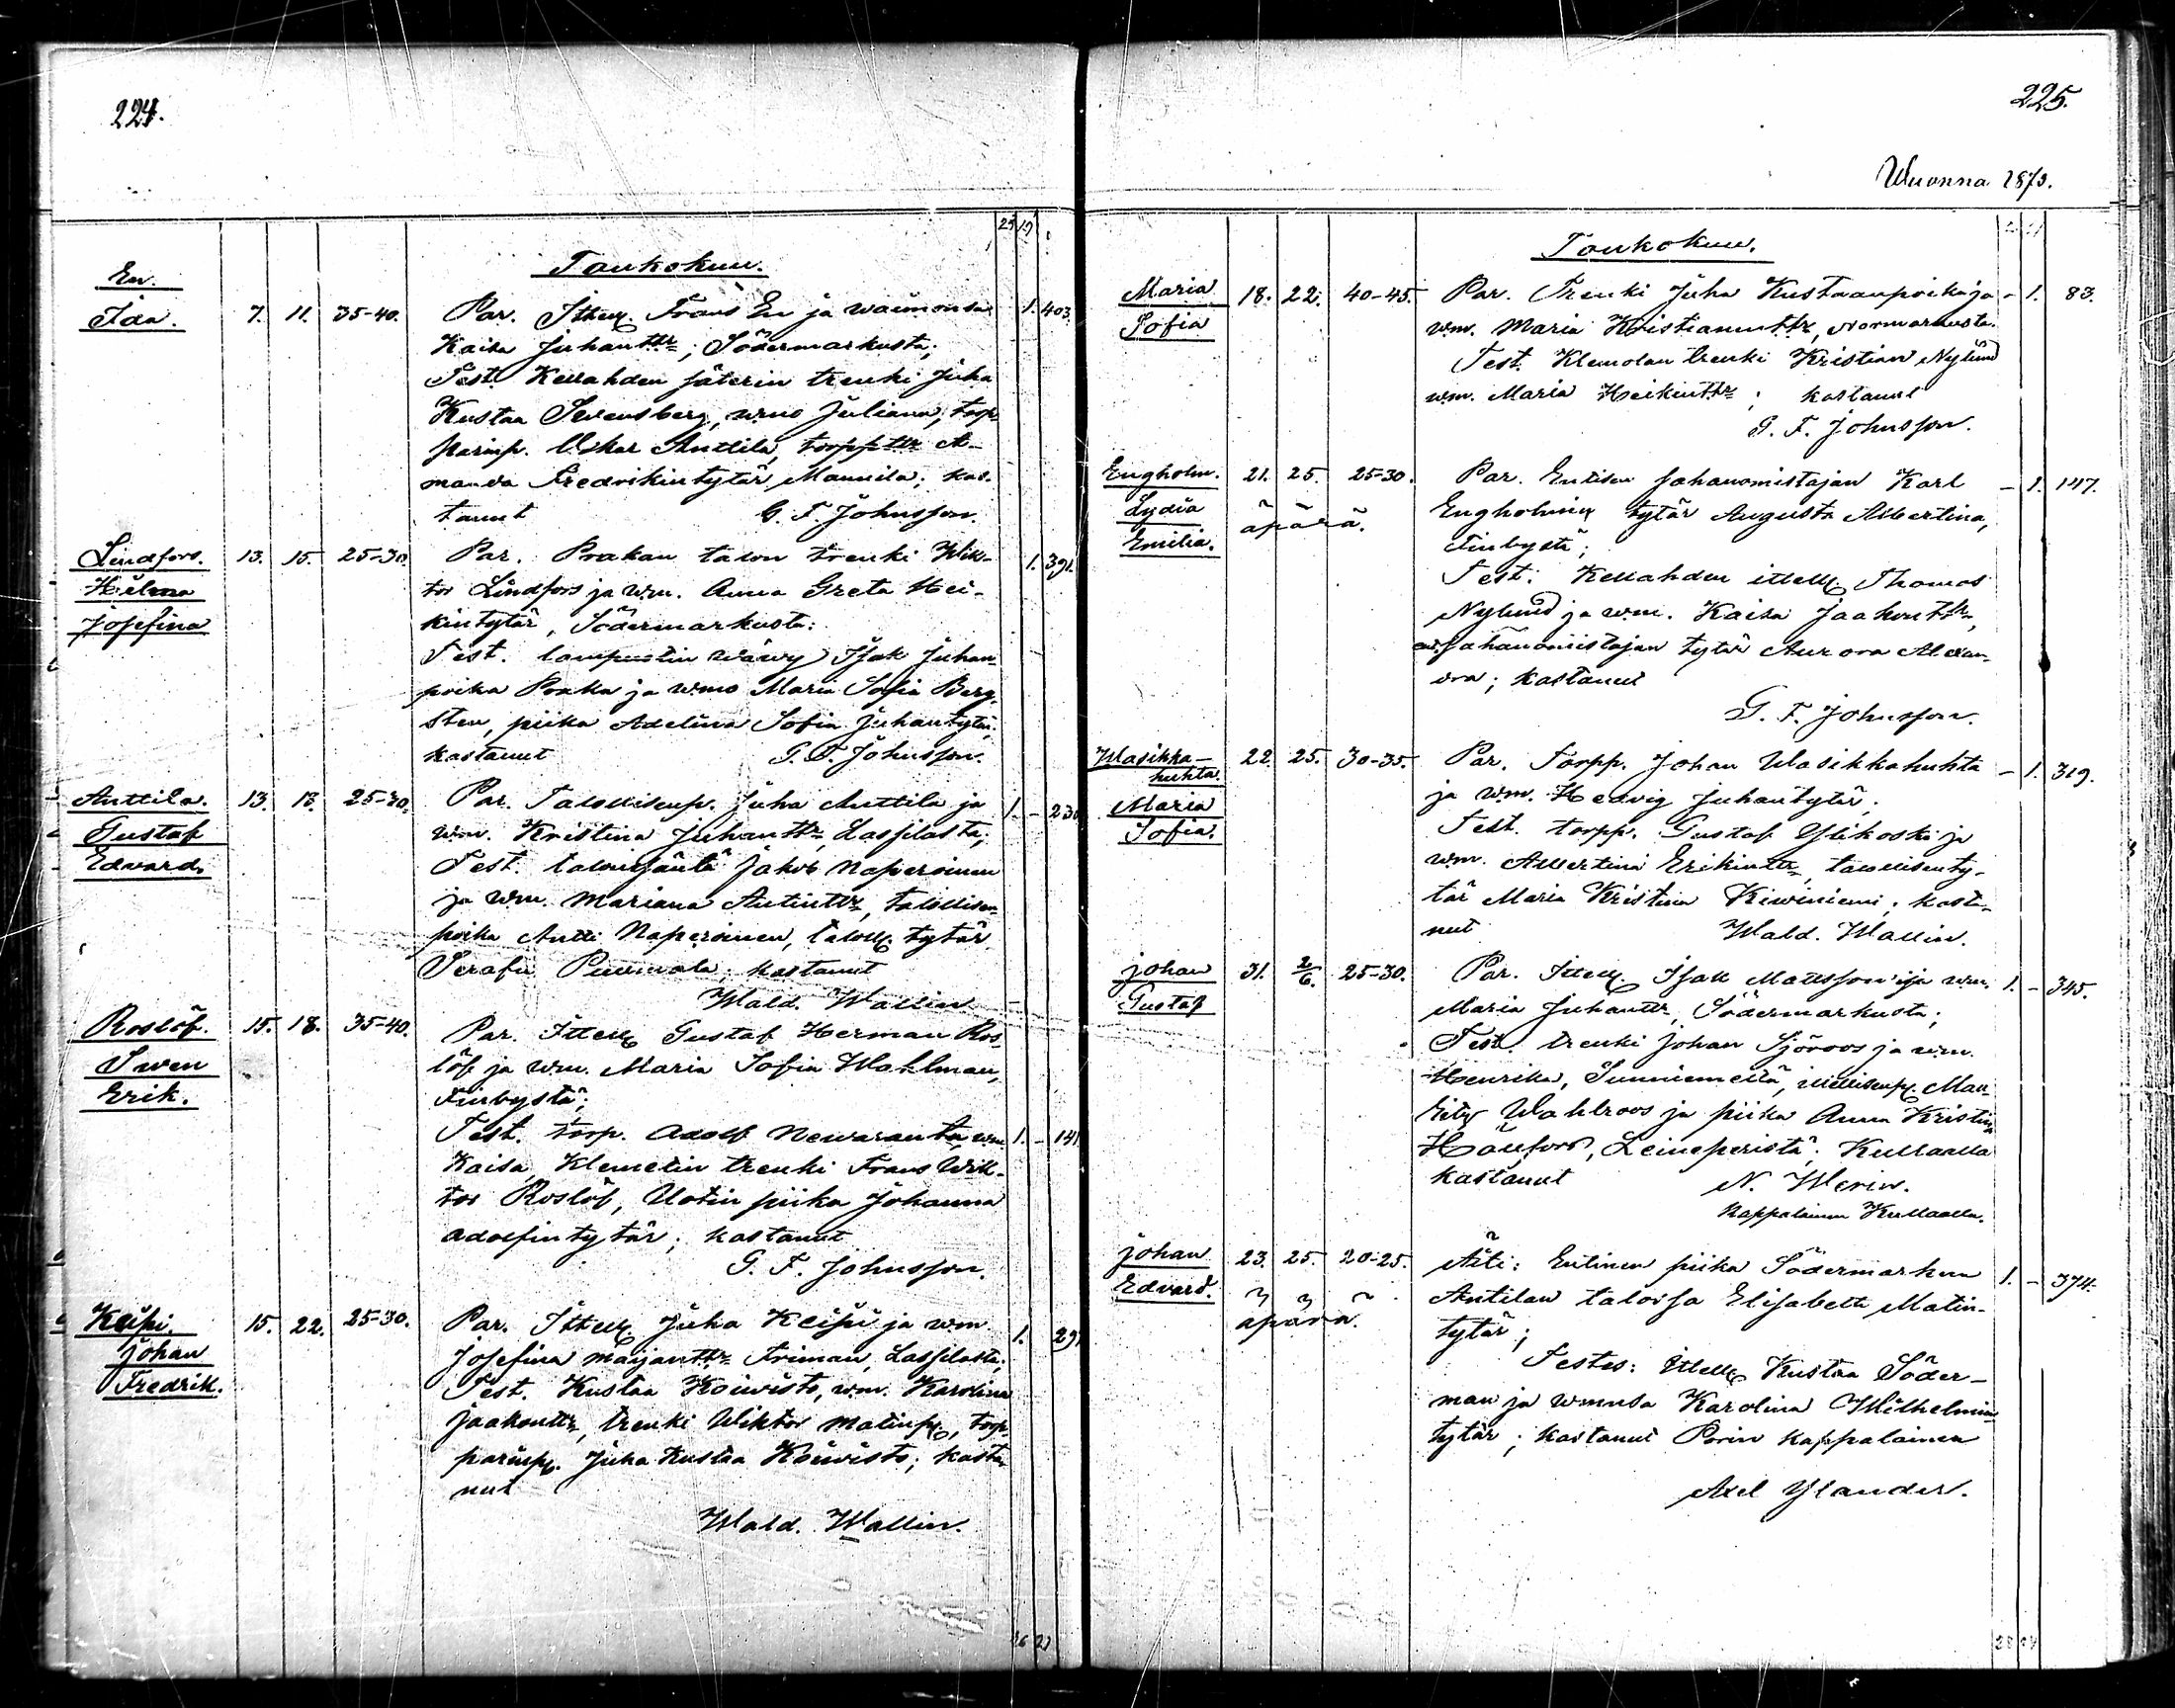 224.
29 19
Toukokuu.
En.
Ida. 7. 11. 35-40. Par. Ittell. Frans En ja waimonsa 1. 403.
Kaisa Juhanttr; Södermarkusta;
Test. Kellahden säterin trenki Juha
Kustaa Sevensberg, wmo Juliana, torp-
parinp. Oskar Anttila, torppttr A-
manda Fredrikintytär, Mannila; kas-
tanut G. F. Johnsson.
Lindfors. 13. 15. 25-30. Par. Prakan talon trenki Wik- 1. 391.
Hilma tor Lindfors ja wm. Anna Greta Hei-
Josefina kintytär, Södermarkusta:
Test. lampuotin wäwy Isak Juhan-
poika Praka ja wmo Maria Sofia Berg-
sten, piika Adelina Sofia Juhantytär,
kastanut G. F. Johnsson.
Anttila. 13. 18. 25-30. Par. Talollisenp. Juha Anttila ja 1. - 230
Gustaf wm. Kristina Juhanttr, Lassilasta;
Edvard. Test. talonisäntä Jakob Naperoinen
ja wm. Mariana Antinttr, talollisen-
poika Antti Naperoinen, taloll. tytär
Serafia; kastanut
Wald. Wallin
Roslöf. 15. 18. 35-40. Par. Ittell. Gustaf Herman Ros-
Swen löf ja wm. Maria Sofia Wahlman,
Erik. Finbystä;
Test. torp. Adolf Newaranta, wm 1. - 141
Kaisa, Klemetin trenki Frans Wik-
tor Roslöf, Uotin piika Johanna
Adolfintytär; kastanut
G. F. Johnsson.
Keisi. 15. 22. 25-30. Par. Ittell. Juha Keisi ja wm. 1. 29
Johan Josefina Maijanttr Friman, Lassilasta;
Fredrik. Test. Kustaa Koiwisto, wm. Karolina
Jaakonttr, trenki Wiktor Matinp., torp-
parinp. Juha Kustaa Koiwisto; kasta-
nut
Wald. Wallin.
225.
Wuonna 1873.
Toukokuu.
Maria 18. 22. 40-45. Par. Trenki Juha Kustaanpoika ja - 1. 83.
Sofia wm. Maria Kristianinttr, Normarkusta.
Test. Klemolan trenki Kristian Nylund
wm. Maria Heikinttr; kastanut
G. F. Johnsson.
Engholm. 21. 25. 25-30. Par. Entisen sahanomistajan Karl - 1. 147.
Lydia äpärä. Engholmin tytär Augusta Albertina,
Emilia. Finbystä;
Test: Kellahden ittell. Thomas
Nylund ja wm. Kaisa Jaakontr,
ent. sahanomistajan tytär Aurora Alexan-
dra; kastanut
G. F. Johnsson.
Wasikka- 22. 25. 30-35. Par. Torpp. Johan Wasikkahuhta - 1. 319.
huhta. ja wm. Hedvig Juhantytär.
Maria Test. torpp. Gustaf Ylikoski ja
Sofia. wm. Albertina Erikinttr, talollisenty-
tär Maria Kristina Kiwiniemi; kasta-
nut Wald. Wallin.
Johan 31. 2/6. 25-30. Par. Ittell. Isak Mattsson ja wm. 1. - 345.
Gustaf Maria Juhanttr, Södermarkusta;
Test. trenki Johan Sjöroos ja wm.
Henrika, Sunniemeltä, itellisenp. Mau-
ritz Wahlroos ja piika Anna Kristina
Hällfors, Leineperistä; Kullaalla
kastanut N. Merin.
Kappalainen Kullaalla.
Johan 23. 25. 20-25. Äiti: Entinen piika Södermarkun 1. - 374.
Edvard. äpärä. Antilan talossa Elisabeth Matin-
tytär;
Testes: Ittell. Kustaa Söder-
man ja wmnsa Karolina Wilhelmin
tytär; kastanut Porin kappalainen
Axel Ylander.